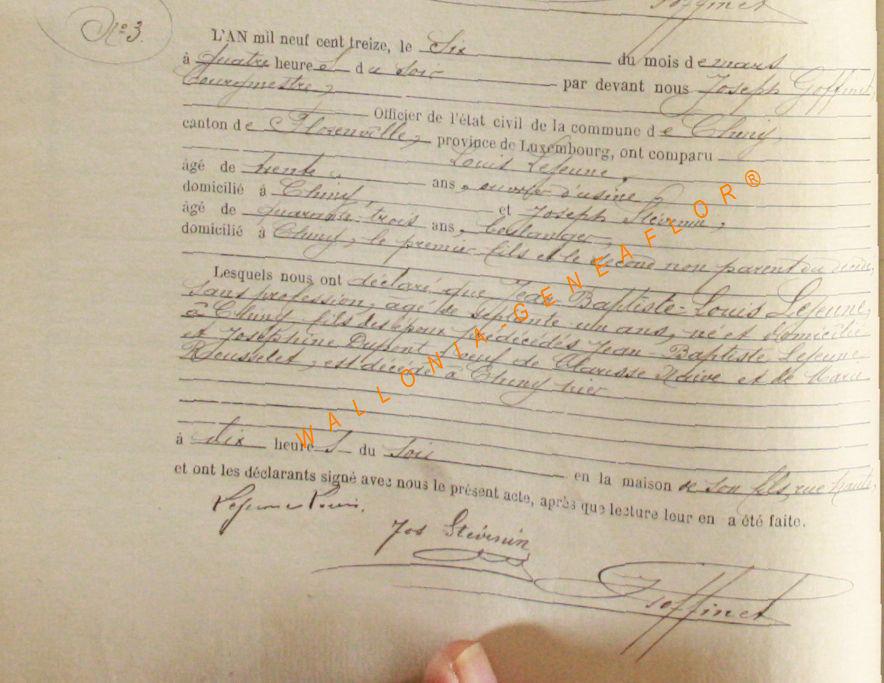 Goffinet
N° 3.
L'AN mil neuf cent treize, le Six du mois de mars
à quatre heures du soir par devant nous Joseph Goffinet,
Bourgmestre,
Officier de l'état civil de la commune de Chiny,
canton de Florenville, province de Luxembourg, ont comparu
Louis Lejeune,
âgé de trente ans, ouvrier d'usine,
domicilié à Chiny, et Joseph Stévenin,
âgé de quarante-trois ans, boulanger,
domicilié à Chiny, le premier fils et le second non parent du
Lesquels nous ont déclaré que Jean Baptiste-Louis Lejeune,
sans profession, agé de septante un ans, né et domicilié
à Chiny, fils des époux prédécédés Jean-Baptiste Lejeune
et Joséphine Dupont, veuf de Clarisse et de Marie
Rousselet, est décédé à Chiny hier
à dix heures du soir en la maison de son fils, rue haute,
et ont les déclarants signé avec nous le présent acte, après que lecture leur en a été faite.
Lejeune Louis.
Jos Stévenin
J Goffinet
WALLONIA-GENEAFLOR®